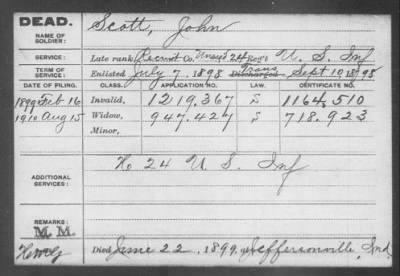 DEAD.
Scott, John
NAME OF SOLDIER:
SERVICE: Late rank Recruit Co. Unasgd 24 Reg't U. S. Inf
TERM OF SERVICE: Enlisted July 7, 1898 Discharged Trans Sept 10, 1898
DATE OF FILING. CLASS. APPLICATION NO. LAW. CERTIFICATE NO.
1899 Feb 16 Invalid, 1219,367 1164,510
1910 Aug 15 Widow, 947.427 718.923
Minor,
ADDITIONAL SERVICES: 24 U. S. Inf
REMARKS:
M. M.
Died June 22, 1899, Jeffersonville, Ind